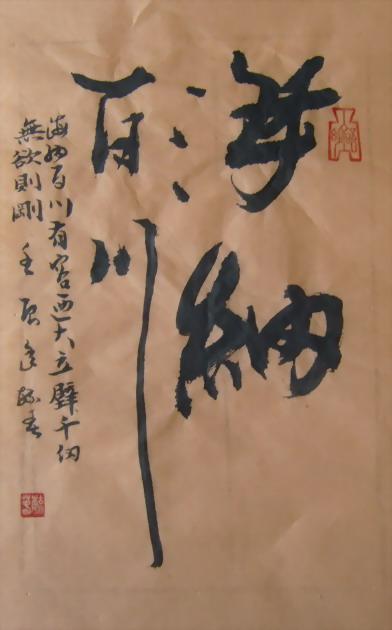 海納
百川
海納百川有容迺大立壁千仞
無欲則剛 壬辰年